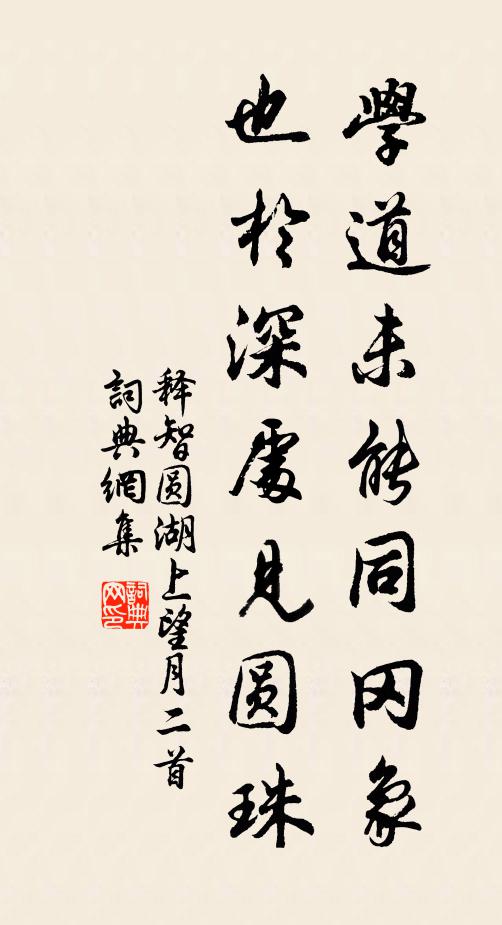 學道未能同罔象
也於深處見圆珠
释智圆湖上望月二首
詞典網集
詞典网印